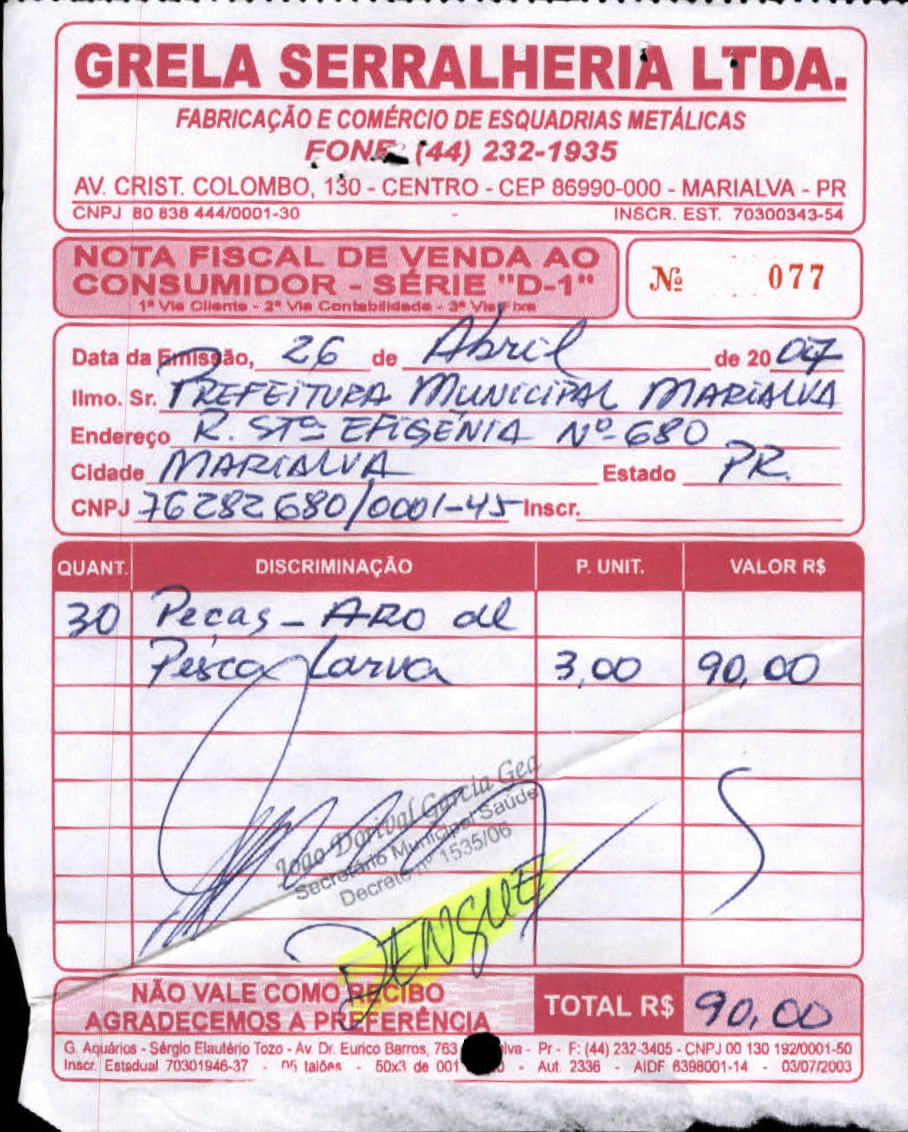 GRELA SERRALHERIA LTDA.
FABRICAÇÃO E COMÉRCIO DE ESQUADRIAS METÁLICAS
FONE (44) 232-1935
AV. CRIST. COLOMBO, 130 - CENTRO - CEP 86990-000 - MARIALVA - PR
CNPJ 80 838 444/0001-30 - INSCR. EST. 70300343-54
NOTA FISCAL DE VENDA AO
CONSUMIDOR - SÉRIE "D-1"
1ª Via Cliente - 2ª Via Contabilidade - 3ª Via Fixa
Nº 077
Data da Emissão, 26 de Abril de 2007
Ilmo. Sr. PREFEITURA MUNICIPAL MARIALVA
Endereço R. STª EFIGÊNIA Nº 680
Cidade MARIALVA Estado PR.
CNPJ 76282680/0001-45 Inscr.
QUANT. DISCRIMINAÇÃO P. UNIT. VALOR R$
30 Pecas - ARO de
Pesca Larva 3,00 90,00
João Dorival Garcia Gea
Secretário Municipal Saúde
Decreto nº 1535/06
DENGUE
NÃO VALE COMO RECIBO
AGRADECEMOS A PREFERÊNCIA
TOTAL R$ 90,00
G. Aquários - Sérgio Elautério Tozo - Av. Dr. Eurico Barros, 763 - Pr - F: (44) 232-3405 - CNPJ 00 130 192/0001-50
Inscr. Estadual 70301946-37 - 05 talões - 50x3 de 001 - Aut. 2336 - AIDF 6398001-14 - 03/07/2003